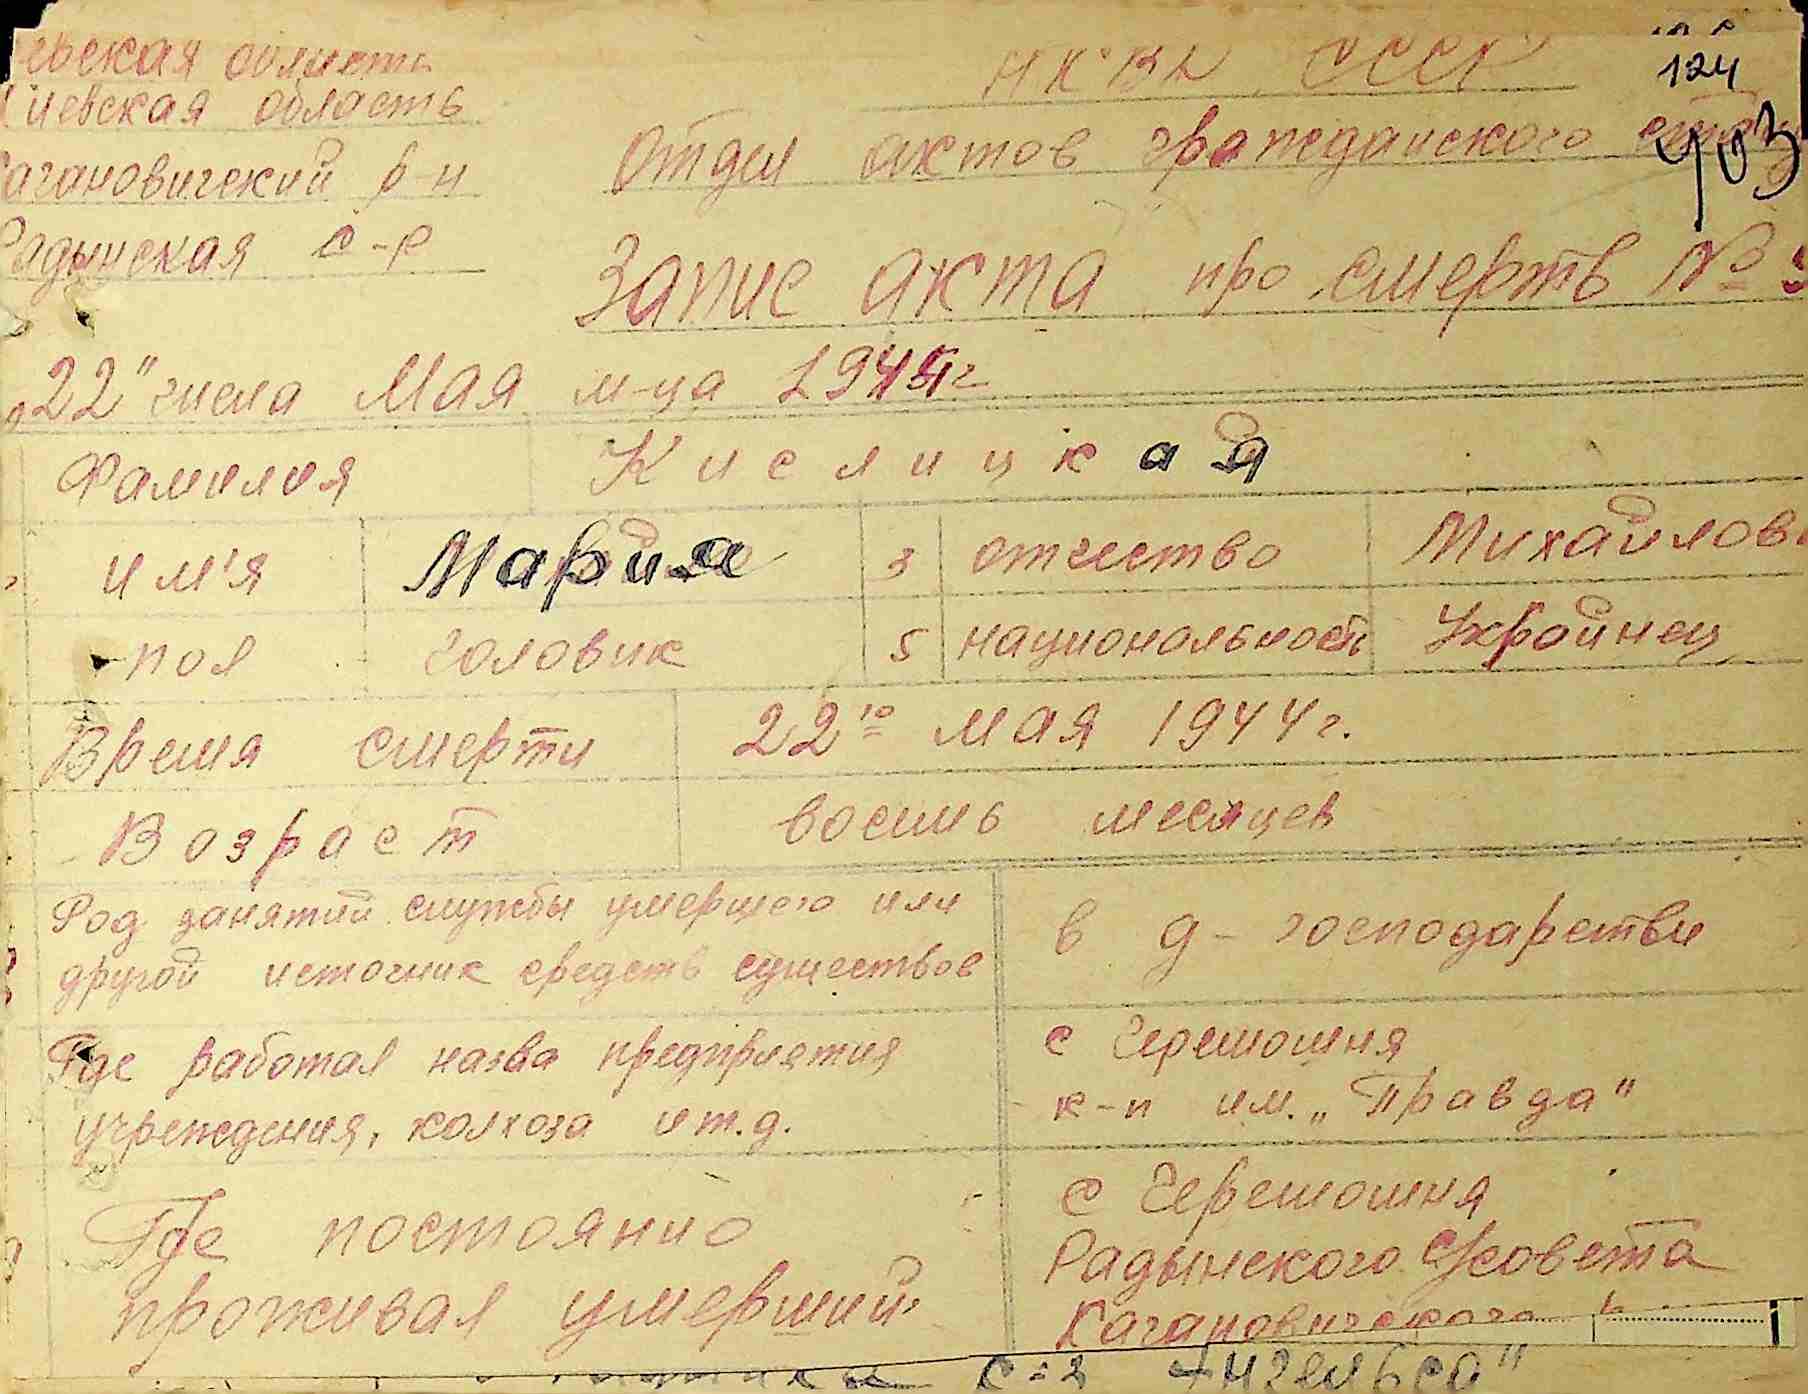 область
Киевская область
Кагановичский р-н
Радынская с-р
НКВД СССР
124
Отдел актов гражданского
903
Запис акта про смерть №
"22" числа Мая м-ца 1944г
Фамилия Кислицкая
им'я Мария 3 отчество Михайлов
пол чоловик 5 национальность Украйнец
Время смерти 22го мая 1944г.
Возраст восимь месяцев
Род занятий службы умершего или
другой источник средств существов
в д-господарстви
Где работал назва предприятия
учреждения, колхоза и т.д.
с Черемошня
к-п им. "Правда"
Где постоянно
проживал умерший
с Черемошня
Радынского С/совета
Кагановичского